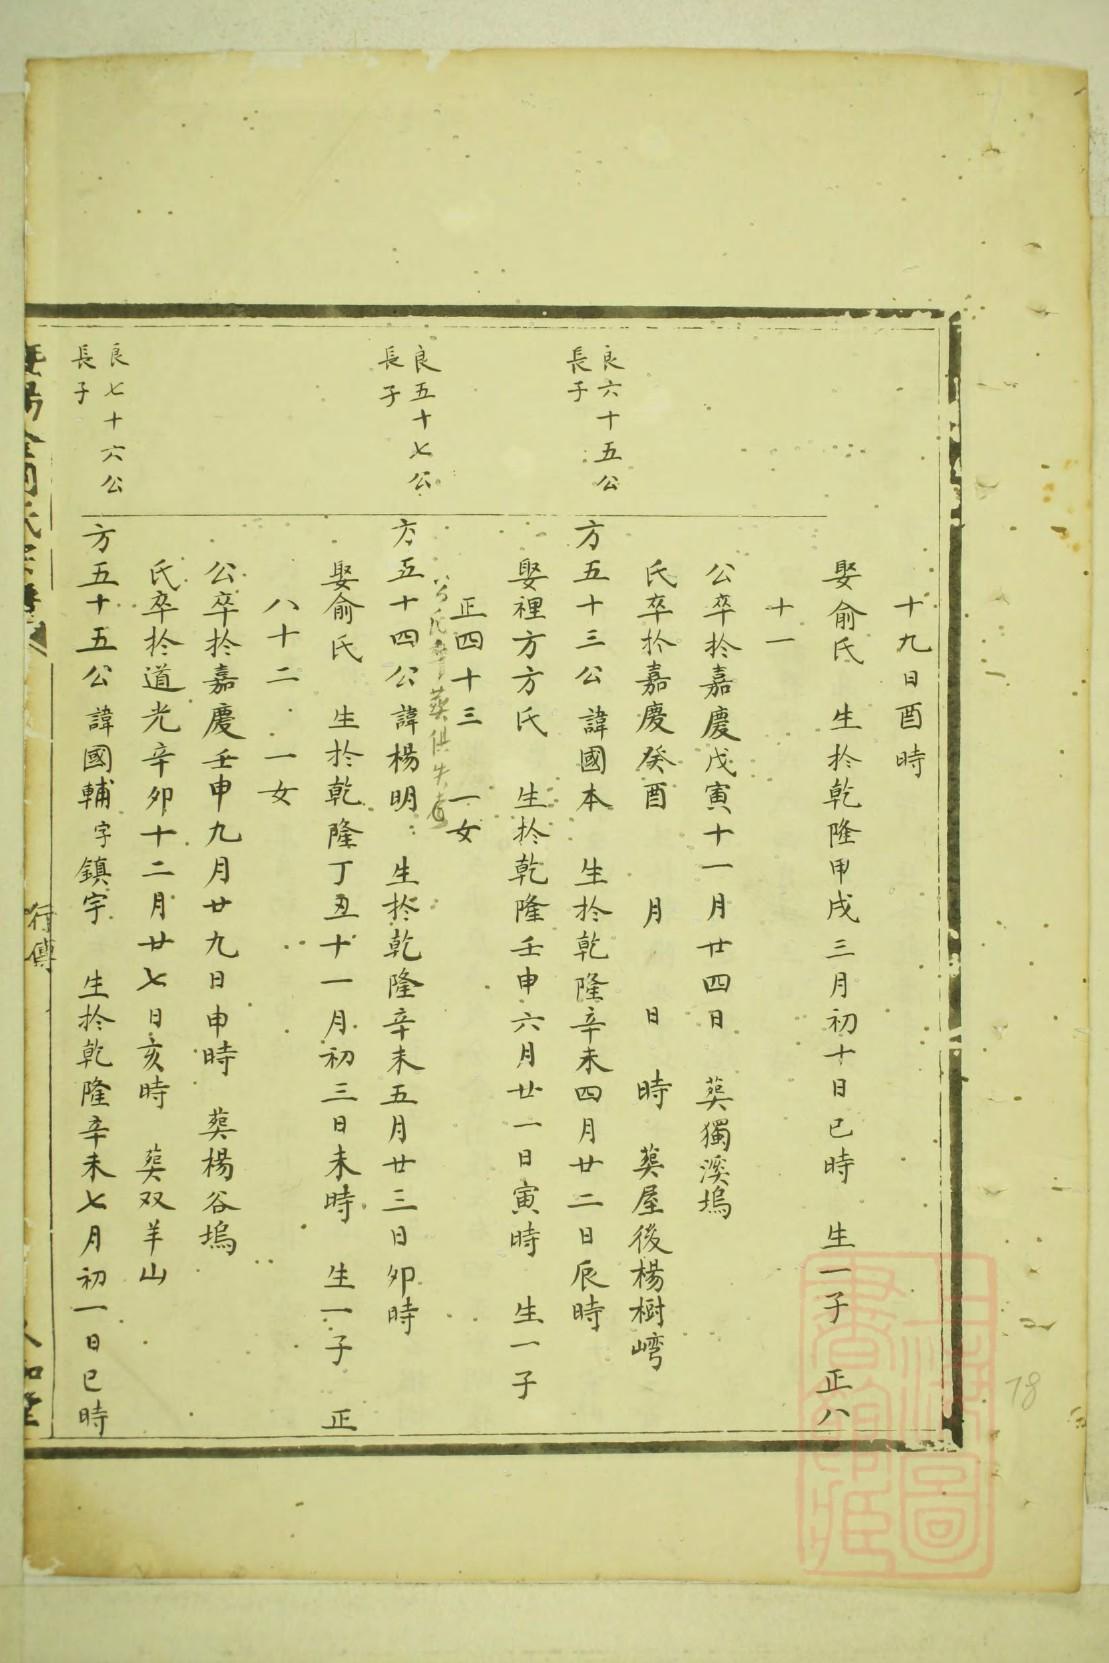 十九日酉時
娶俞氏 生於乾隆甲戌三月初十日巳時 生一子 正八
十一
公卒於嘉慶戊寅十一月廿四日 葬獨溪塢
氏卒於嘉慶癸酉 月 日 時 葬屋後楊樹嶹
良六十五公
長子
方五十三公諱國本 生於乾隆辛未四月廿二日辰時
娶裡方方氏 生於乾隆壬申六月廿一日寅時 生一子
正四十三 一女
公氏卒葬俱失考
良五十七公
長子
方五十四公諱楊明 生於乾隆辛未五月廿三日卯時
娶俞氏 生於乾隆丁丑十一月初三日未時 生一子 正
八十二 一女
公卒於嘉慶壬申九月廿九日申時 葬楊谷塢
氏卒於道光辛卯十二月廿七日亥時 葬双羊山
良七十六公
長子
方五十五公諱國輔字鎮宇 生於乾隆辛未七月初一日巳時
行傳
上海圖
書館藏
18